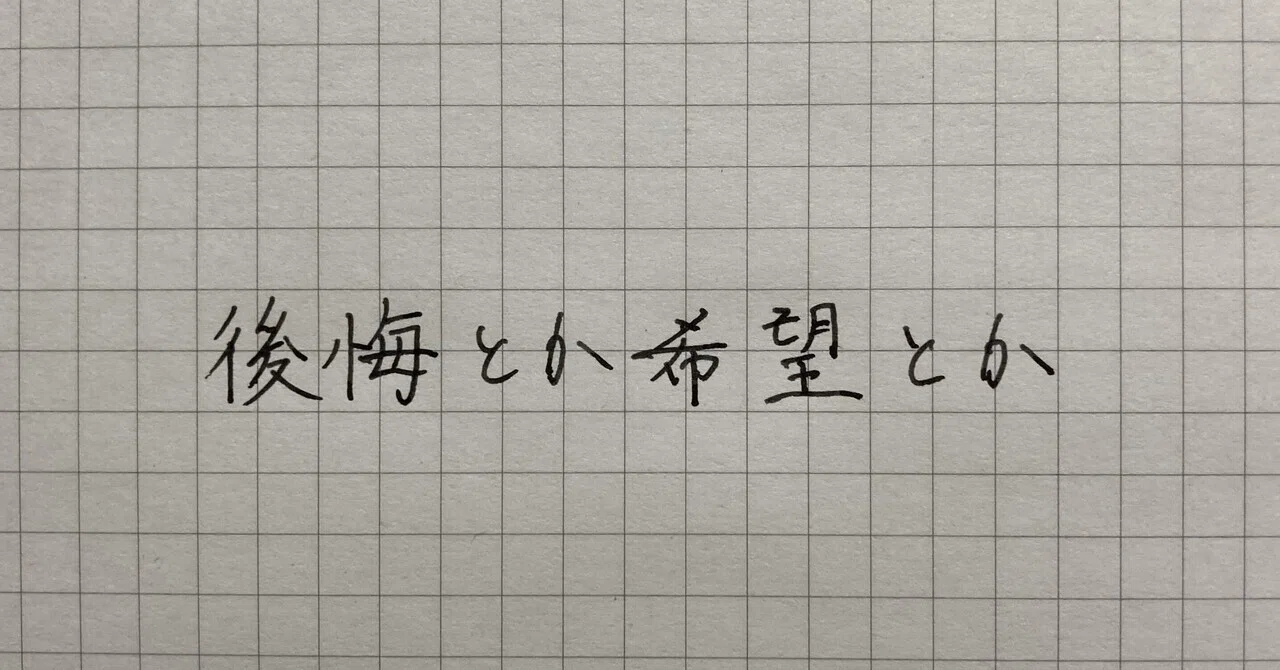 後悔とか希望とか